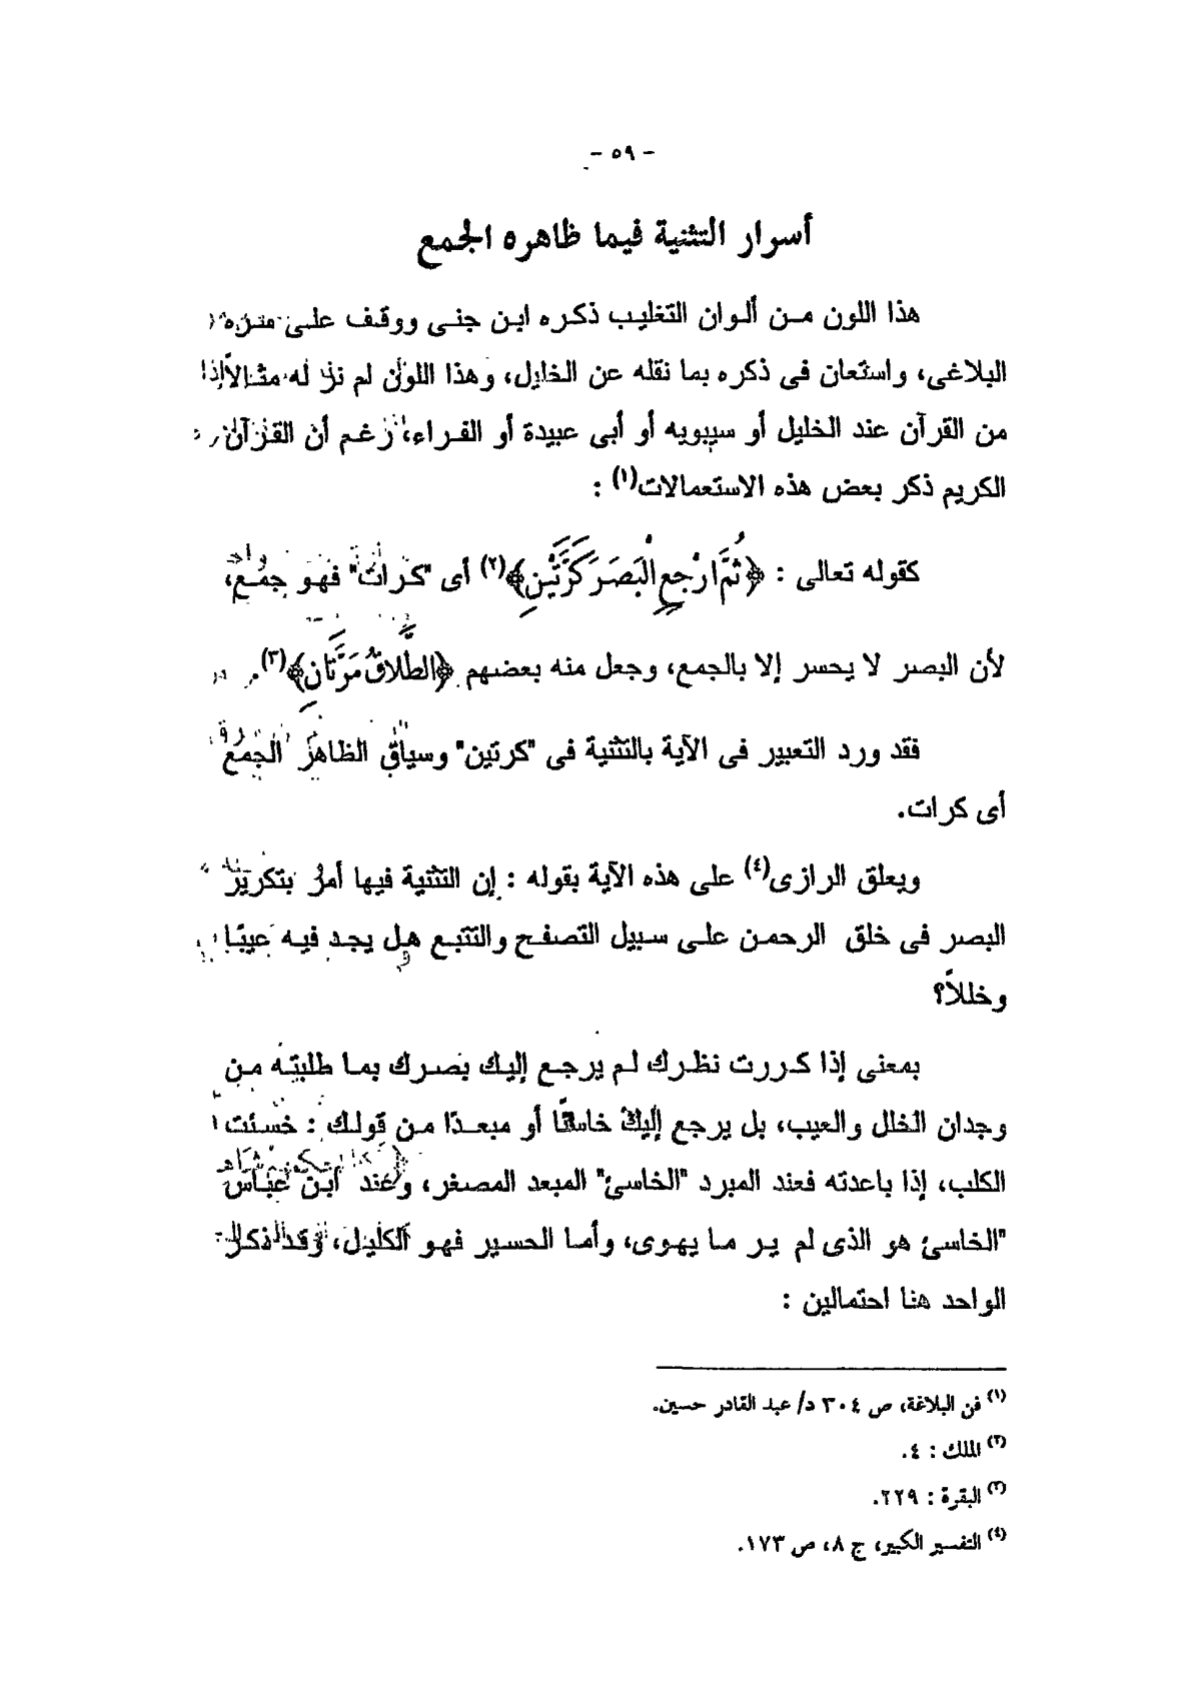 - ٥٩ -
أسرار التثنية فيما ظاهره الجمع
هذا اللون من ألوان التغليب ذكره ابن جنى ووقف على
البلاغى، واستعان فى ذكره بما نقله عن الخليل، وهذا اللون لم نر له مثالاً
من القرآن عند الخليل أو سيبويه أو أبى عبيدة أو الفراء، رغم أن القرآن
الكريم ذكر بعض هذه الاستعمالات(١) :
كقوله تعالى : ﴿ثُمَّ ارْجِعِ الْبَصَرَ كَرَّتَيْنِ﴾(٢) أى "كرات" فهو جمع،
لأن البصر لا يحسر إلا بالجمع، وجعل منه بعضهم ﴿الطَّلاقُ مَرَّتَانِ﴾(٣).
فقد ورد التعبير فى الآية بالتثنية فى "كرتين" وسياق الظاهر الجمع
أى كرات.
ويعلق الرازى(٤) على هذه الآية بقوله : إن التثنية فيها أمر بتكرير
البصر فى خلق الرحمن على سبيل التصفح والتتبع هل يجد فيه عيبًا
وخللاً؟
بمعنى إذا كررت نظرك لم يرجع إليك بصرك بما طلبته من
وجدان الخلل والعيب، بل يرجع إليك خاسئًا أو مبعدًا من قولك : خسئت
الكلب، إذا باعدته فعند المبرد "الخاسئ" المبعد المصغر، وعند ابن عباس
"الخاسئ هو الذى لم ير ما يهوى، وأما الحسير فهو الكليل، وقد ذكر
الواحد هنا احتمالين :
(١) فن البلاغة، ص ٣٠٤ د/ عبد القادر حسين.
(٢) الملك : ٤.
(٣) البقرة : ٢٢٩.
(٤) التفسير الكبير، ج ٨، ص ١٧٣.